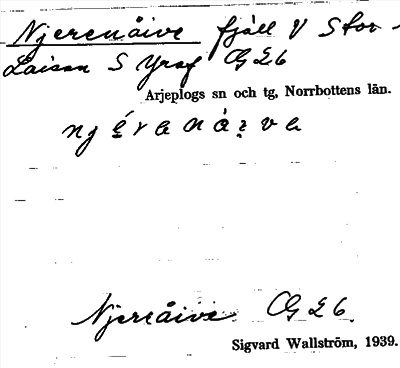 Njerenåive fjäll V Stor-
Laisan S Yraf CG Æ6
Arjeplogs sn och tg, Norrbottens län.
Njerråive CG Æ6.
Sigvard Wallström, 1939.